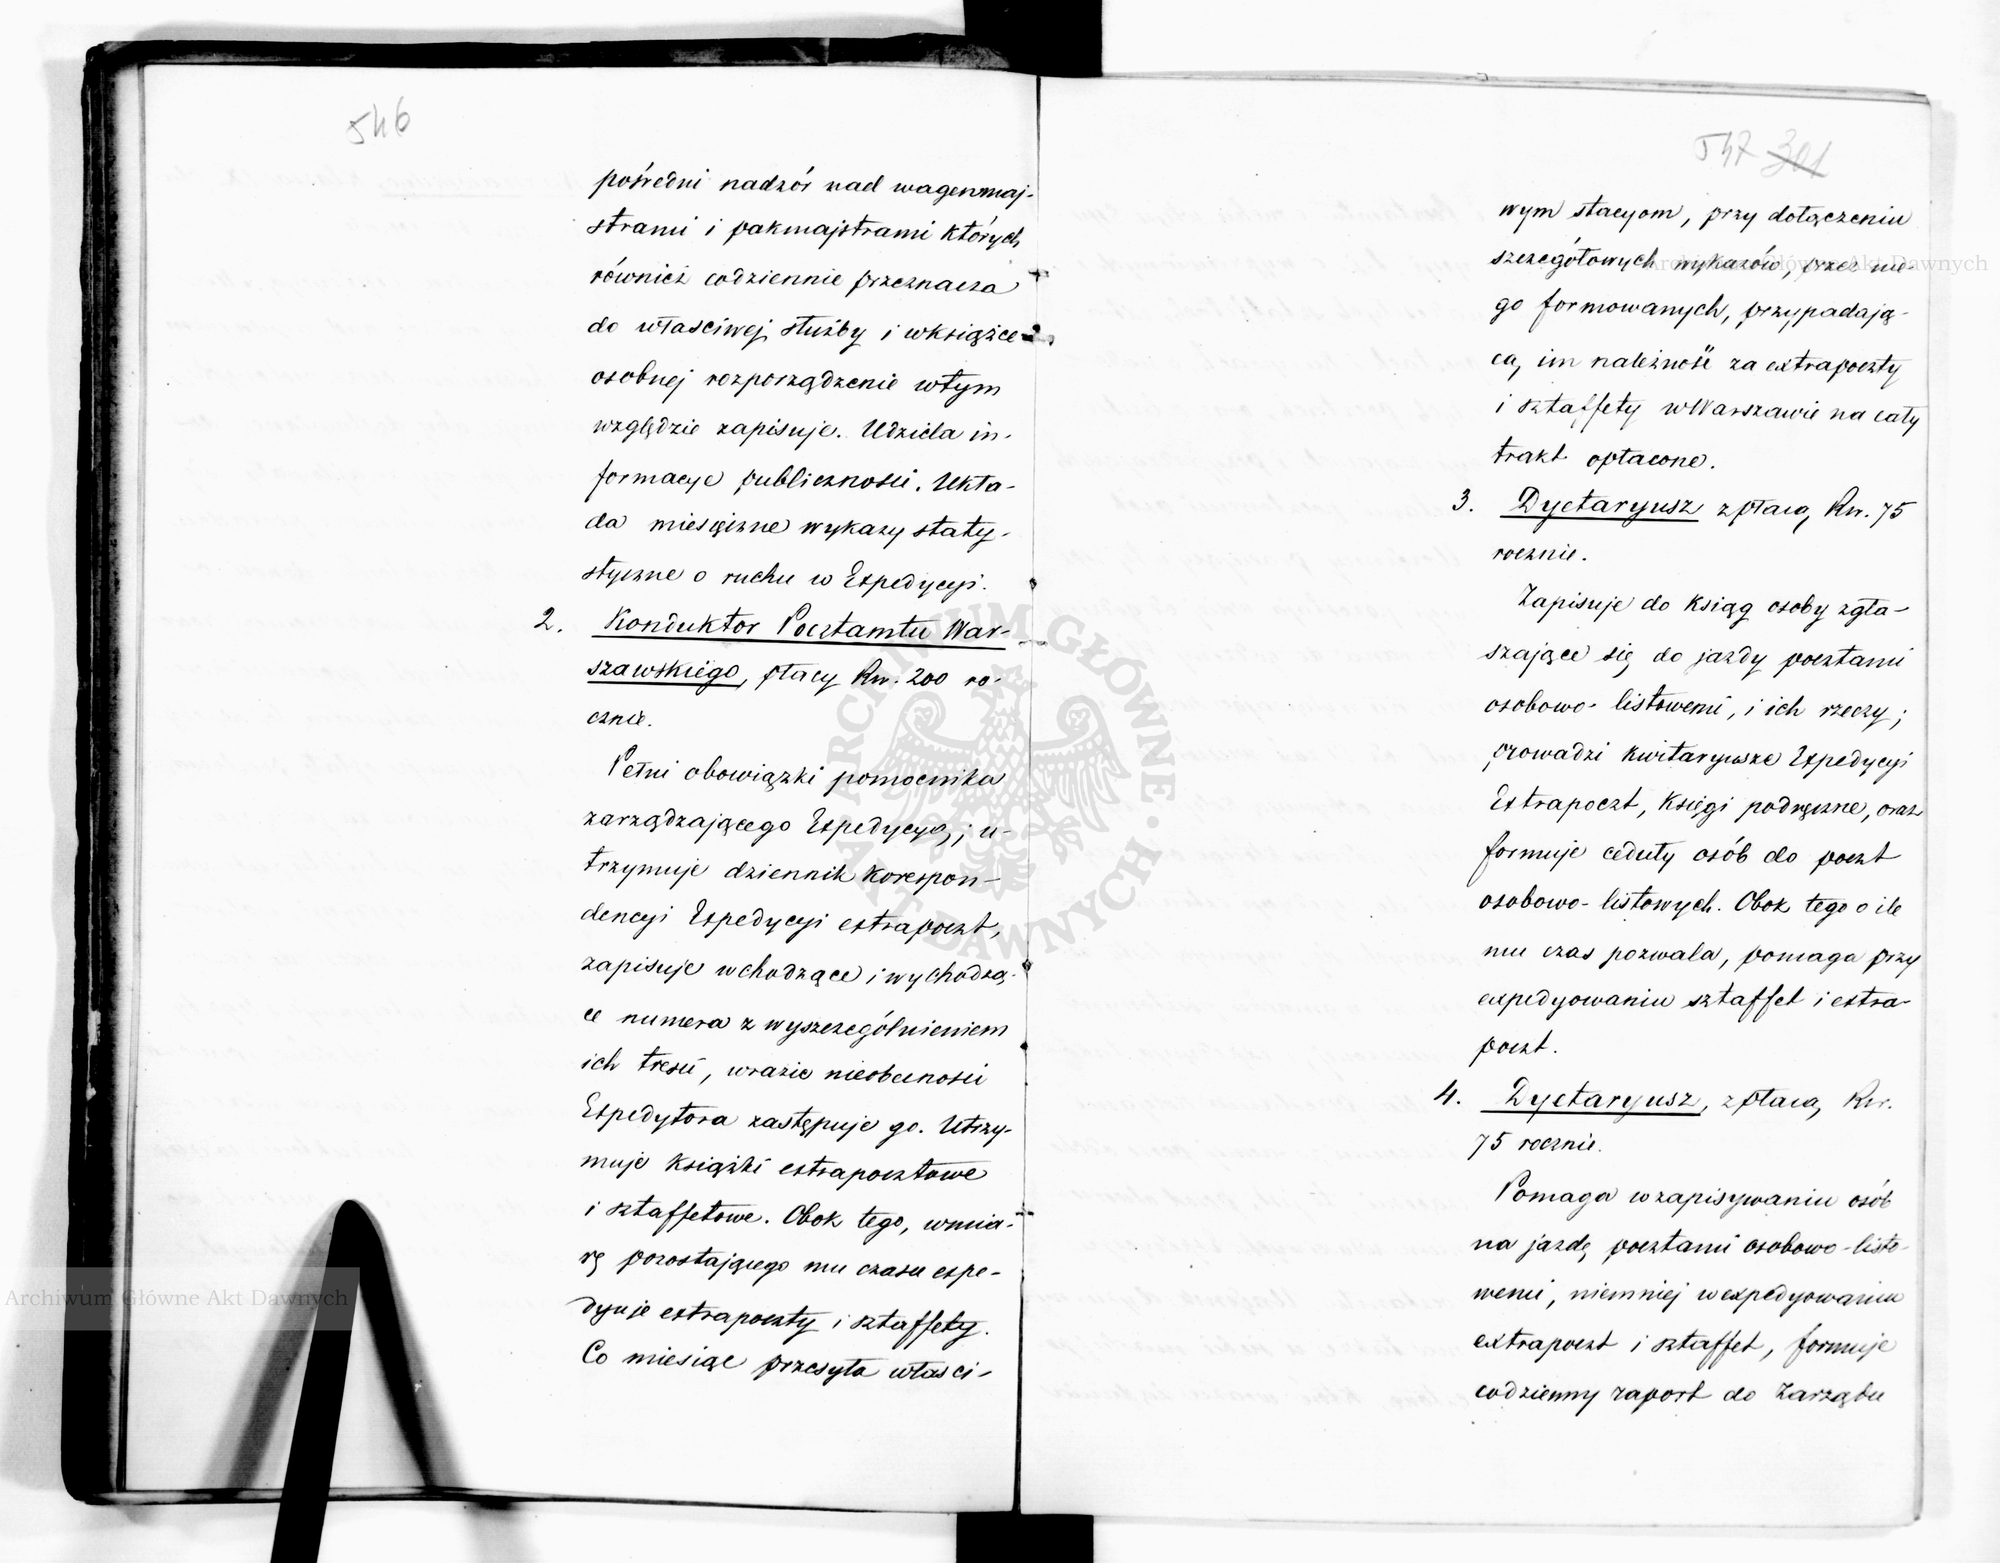 546
pośredni nadzór nad wagenmaj-
strami i pakmajstrami których
również codziennie przeznacza
do własciwej służby i wksiążce
osobnej rozporządzenie wtym
względzie zapisuje. Udziela in-
formacye publicznosci. Ukła-
da miesięczne wykazy staty-
styczne o ruchu w Expedycyi.
2. Konduktor Pocztamtu War-
szawskiego, płacy Rsr. 200 ro-
cznie.
Pełni obowiązki pomocnika
zarządzającego Expedycyą; u-
trzymuje dziennik korespon-
dencyi Expedycyi extrapoczt,
zapisuje wchodzące i wychodzą-
ce numera z wyszczególnieniem
ich tresci, wrazie nieobecnosci
Expedytora zastępuje go. Utrzy-
muje książki extrapocztowe
i sztaffetowe. Obok tego, wmia-
rę pozostającego mu czasu expe-
dyuje extrapoczty i sztaffety.
Co miesiąc przesyła własci-
547 301
wym stacyom, przy dołączeniu
szczegółowych wykazów, przez nie-
go formowanych, przypadają-
cą im należność za extrapoczty
i sztaffety wWarszawie na cały
trakt opłacone.
3. Dyetaryusz z płacą Rsr. 75
rocznie.
Zapisuje do ksiąg osoby zgła-
szające się do jazdy pocztami
osobowo-listowemi, i ich rzeczy;
prowadzi kwitaryusze Expedycyi
Extrapoczt, księgi podręczne, oraz
formuje ceduły osób do poczt
osobowo-listowych. Obok tego o ile
mu czas pozwala, pomaga przy
expedyowaniu sztaffet i extra-
poczt.
4. Dyetaryusz, z płacą Rsr.
75 rocznie.
Pomaga wzapisywaniu osób
na jazdę pocztami osobowo-listo-
wemi, niemniej wexpedyowaniu
extrapoczt i sztaffet, formuje
codzienny raport do Zarządu
ARCHIWUM GŁÓWNE AKT DAWNYCH
Archiwum Główne Akt Dawnych
Archiwum Główne Akt Dawnych